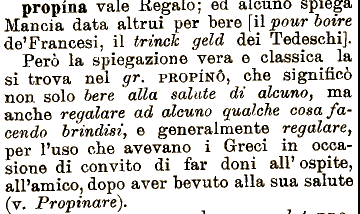 propina vale Regalo; ed alcuno spiega
Mancia data altrui per bere [il pour boire
de'Francesi, il trinck geld dei Tedeschi].
Però la spiegazione vera e classica la
si trova nel gr. PROPINÔ, che significò
non solo bere alla salute di alcuno, ma
anche regalare ad alcuno qualche cosa fa-
cendo brindisi, e generalmente regalare,
per l'uso che avevano i Greci in occa-
sione di convito di far doni all'ospite,
all'amico, dopo aver bevuto alla sua salute
(v. Propinare).